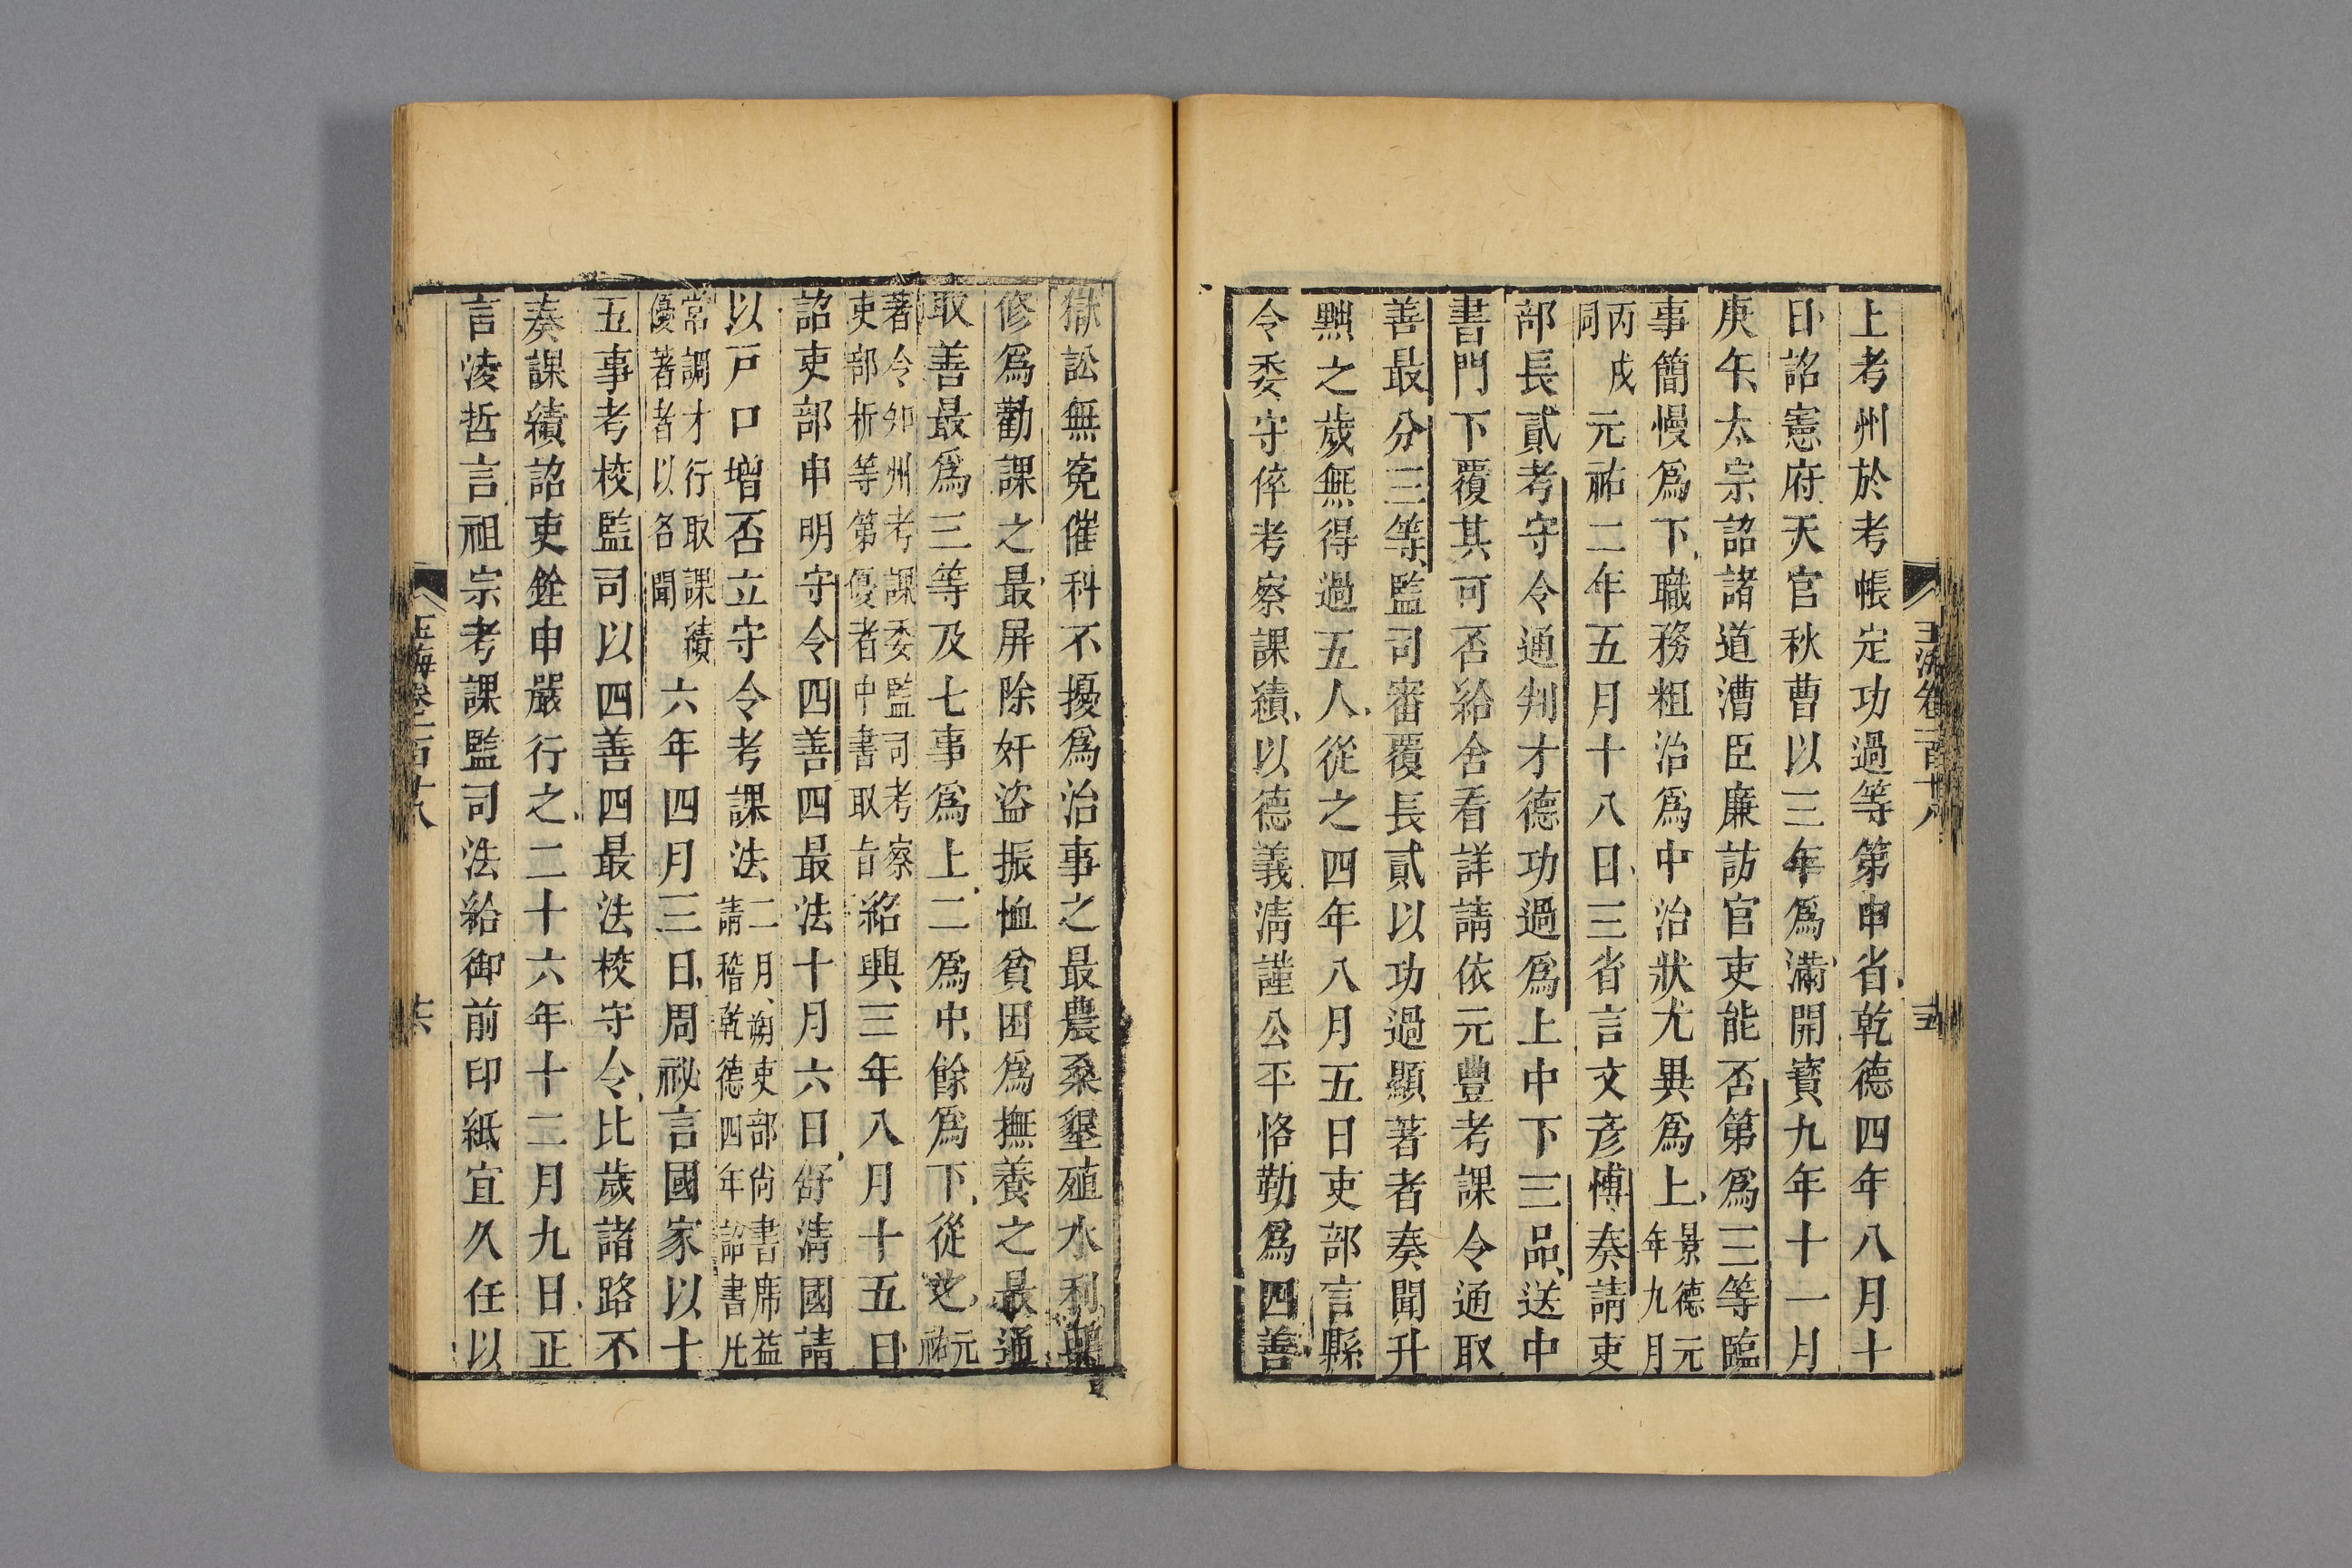 上考州於考帳定功過等第申省乾德四年八月十
日詔憲府天官秋曹以三年爲滿開寶九年十一月
庚午太宗詔諸道漕臣廉訪官吏能否第爲三等臨
事簡慢爲下職務粗治爲中治狀尤異爲上景德元
年九月
丙戌
同
元祐二年五月十八日三省言文彦博奏請吏
部長貳考守令通判才德功過爲上中下三品送中
書門下覆其可否給舍看詳請依元豐考課令通取
善最分三等監司審覆長貳以功過顯著者奏聞升
黜之歲無得過五人從之四年八月五日吏部言縣
令委守倅考察課績以德義淸謹公平恪勤爲四善
玉海卷一百十八
獄訟無寃催科不擾爲治事之最農桑墾殖水利興
修爲勸課之最屏除奸盜振恤貧困爲撫養之最通
取善最爲三等及七事爲上二爲中餘爲下從之元
祐
著令知州考課委監司考察
吏部析等第優者中書取旨
紹興三年八月十五日
詔吏部申明守令四善四最法十月六日舒淸國請
以戸口增否立守令考課法二月朔吏部尙書席益
請稽乾德四年詔書凡
常調才行取課績
優著者以名聞
六年四月三日周祕言國家以十
五事考校監司以四善四最法校守令比歲諸路不
奏課績詔吏銓申嚴行之二十六年十二月九日正
言凌哲言祖宗考課監司法給御前印紙宜久任以
玉海卷一百十八